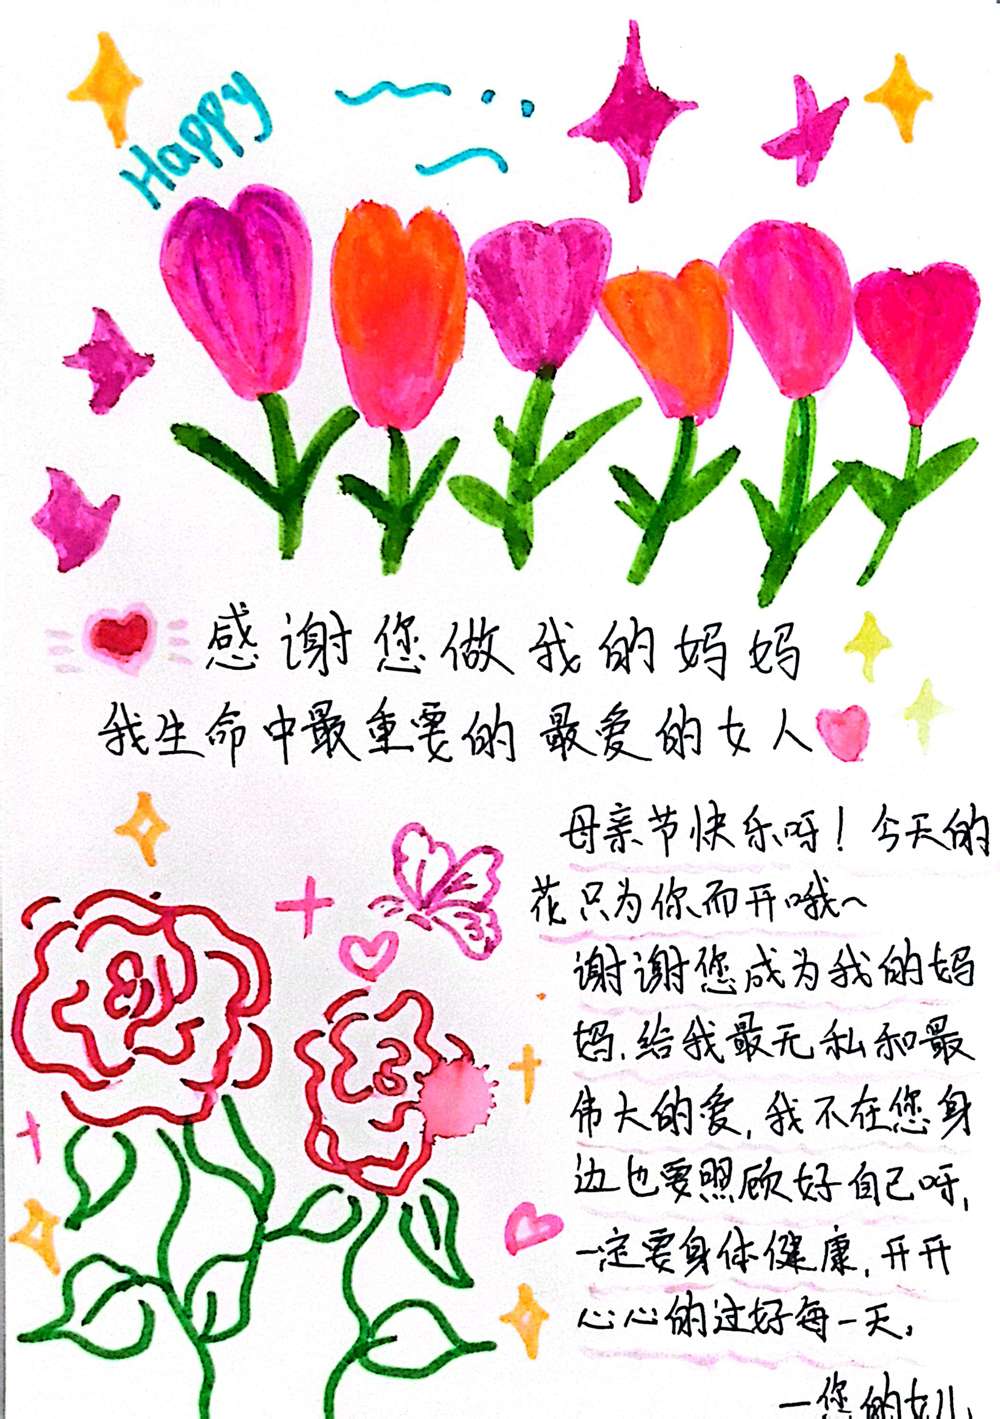 Happy
感谢您做我的妈妈
我生命中最重要的 最爱的女人
母亲节快乐呀！今天的
花只为你而开哦～
谢谢您成为我的妈
妈,给我最无私和最
伟大的爱,我不在您身
边也要照顾好自己呀,
一定要身体健康,开开
心心的过好每一天。
—您的女儿